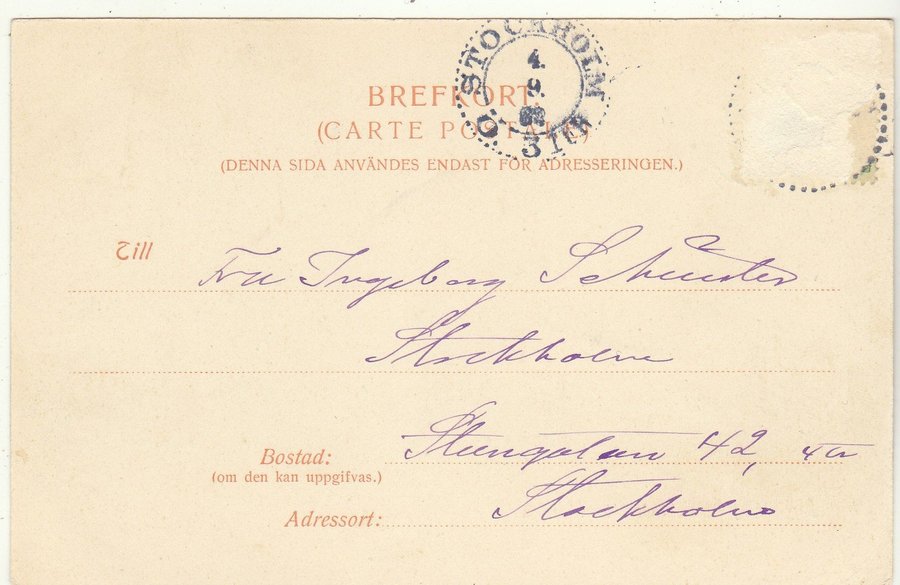 STOCKHOLM Ö.
4.
9.
3 TUR
BREFKORT.
(CARTE POSTALE)
(DENNA SIDA ANVÄNDES ENDAST FÖR ADRESSERINGEN.)
Till Fru Ingeborg Schuster
Stockholm
Bostad: 42,
(om den kan uppgifvas.)
Adressort: Stockholm